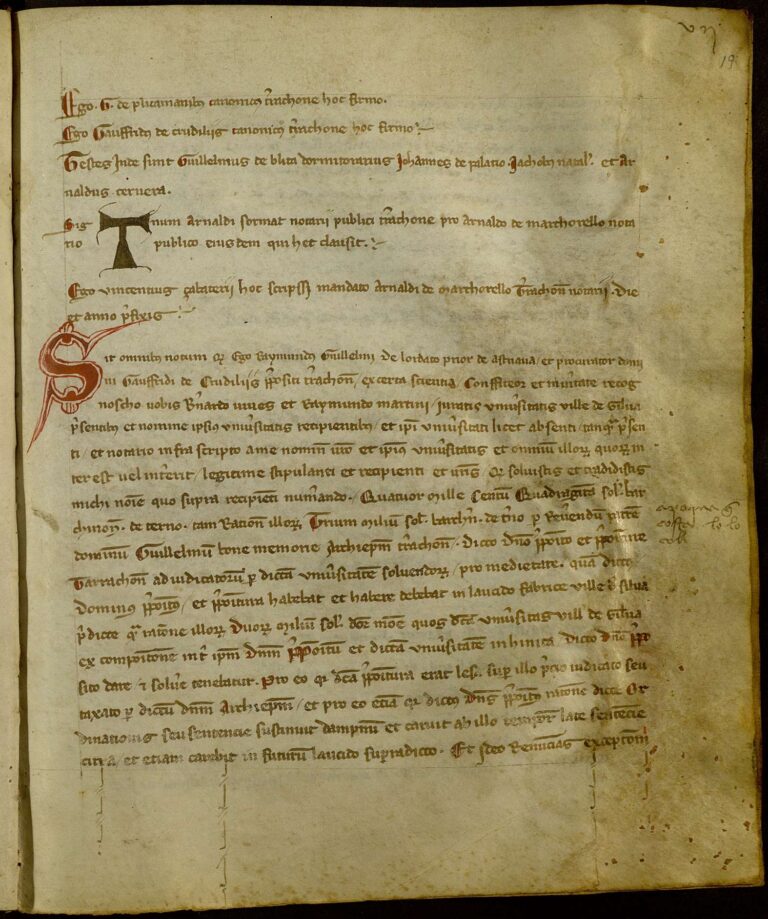 vij
19
Ego .G. de plicamanibꝫ canonicꝰ tr̃rachone hoc firmo.
Ego Gauffridꝰ de crudiliis canonicꝰ tr̃rachone hoc firmo
Testes inde sunt Guillelmus de blita dormitorarius Johannes de palatio Jacobus natal'. et Ar
naldus cervera.
Sig T num arnaldi sormat notarii publici tr̃rachone pro arnaldo de marthorello nota
rio publico eiusdem qui hec clausit.
Ego vincentius çabaterii hoc scripsi mandato arnaldi de marthorello Tr̃rachoñ notarii. Die
et anno p̃fixis
Sit omnibꝫ notum qr Ego Raymundꝰ Guillelmi de lordato prior de et procurator domi
ni Gauffridi de Crudiliis p̃positi tr̃rachoñ, ex certa scientia, Confiteor et in v̾itate recog
noscho vobis B̃nardo vives et Raymundo martini, iuratis univ̾sitatis ville de silva
p̃sentibꝫ et nomine ipsiꝰ univ̾sitatis recipientibꝫ et ip̃i univ̾sitati licet absenti tanq̃ p̃sen
ti, et notario infra scripto a me nomĩe et ipiꝰ univ̾sitatis et omniũ illoꝝ quoꝝ in
terest vel int̾erit, legitime stipulanti et recipienti et qr solvistis et tradidistis
michi nõie quo supra recipiẽti num̾ando. Quatuor mille Centũ Quadraginta sol'. bar
chinoñ. de terno. tam racioñ illoꝝ Trium miliũ sol'. barchñ. de t̾no p Rev̾endũ patrẽ
dominũ Guillelmũ bone memorie Archiep̃m tr̃rachoñ. dicto dño p̃posito et p̃positure
Tarrachoñ adiudicatoꝝ p dictã univ̾sitatẽ solvendoꝝ, pro medietate. quã dictꝰ
Dominus p̃positꝰ, et p̃positura habebat et habere debebat in laucido fabrice ville d̾ silva
p̃dicte qr̃ ratione illoꝝ Duoꝝ miliũ sol'. mõe quos dc̃a univ̾sitas vill' de silva
ex compositone int̾ ip̃m dñm p̃positũ et dictã univ̾sitatẽ inhinita dicto dño p̃po
sito dare et solv̾e tenebatur. Pro eo qr dc̃a p̃positura erat les. sup illo p̾cio iudicato seu
taxato p dictũ dñm Archiep̃m, et pro eo eciã qr dictus dñs p̃positꝰ ratione dicte Or
dinationis seu sentencie sustinuit dampnũ et caruit ab illo tempore late sentẽcie
cit̾a, et etiam carebit in futurũ laucido supradicto. Et ideo Renũcias exceptõni